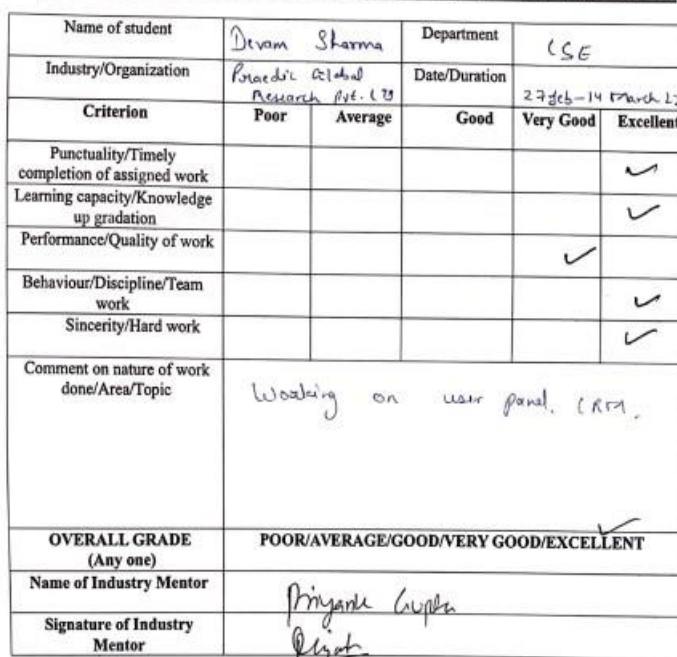 Name of student Devam Sharma Department CSE
Industry/Organization Global Research Pvt. Date/Duration 27 feb - 14 March
Criterion Poor Average Good Very Good Excellent
Punctuality/Timely
completion of assigned work ✓
Learning capacity/Knowledge
up gradation ✓
Performance/Quality of work ✓
Behaviour/Discipline/Team
work ✓
Sincerity/Hard work ✓
Comment on nature of work
done/Area/Topic Working on user panel. CRM.
OVERALL GRADE
(Any one) POOR/AVERAGE/GOOD/VERY GOOD/EXCELLENT ✓
Name of Industry Mentor Gupta
Signature of Industry
Mentor